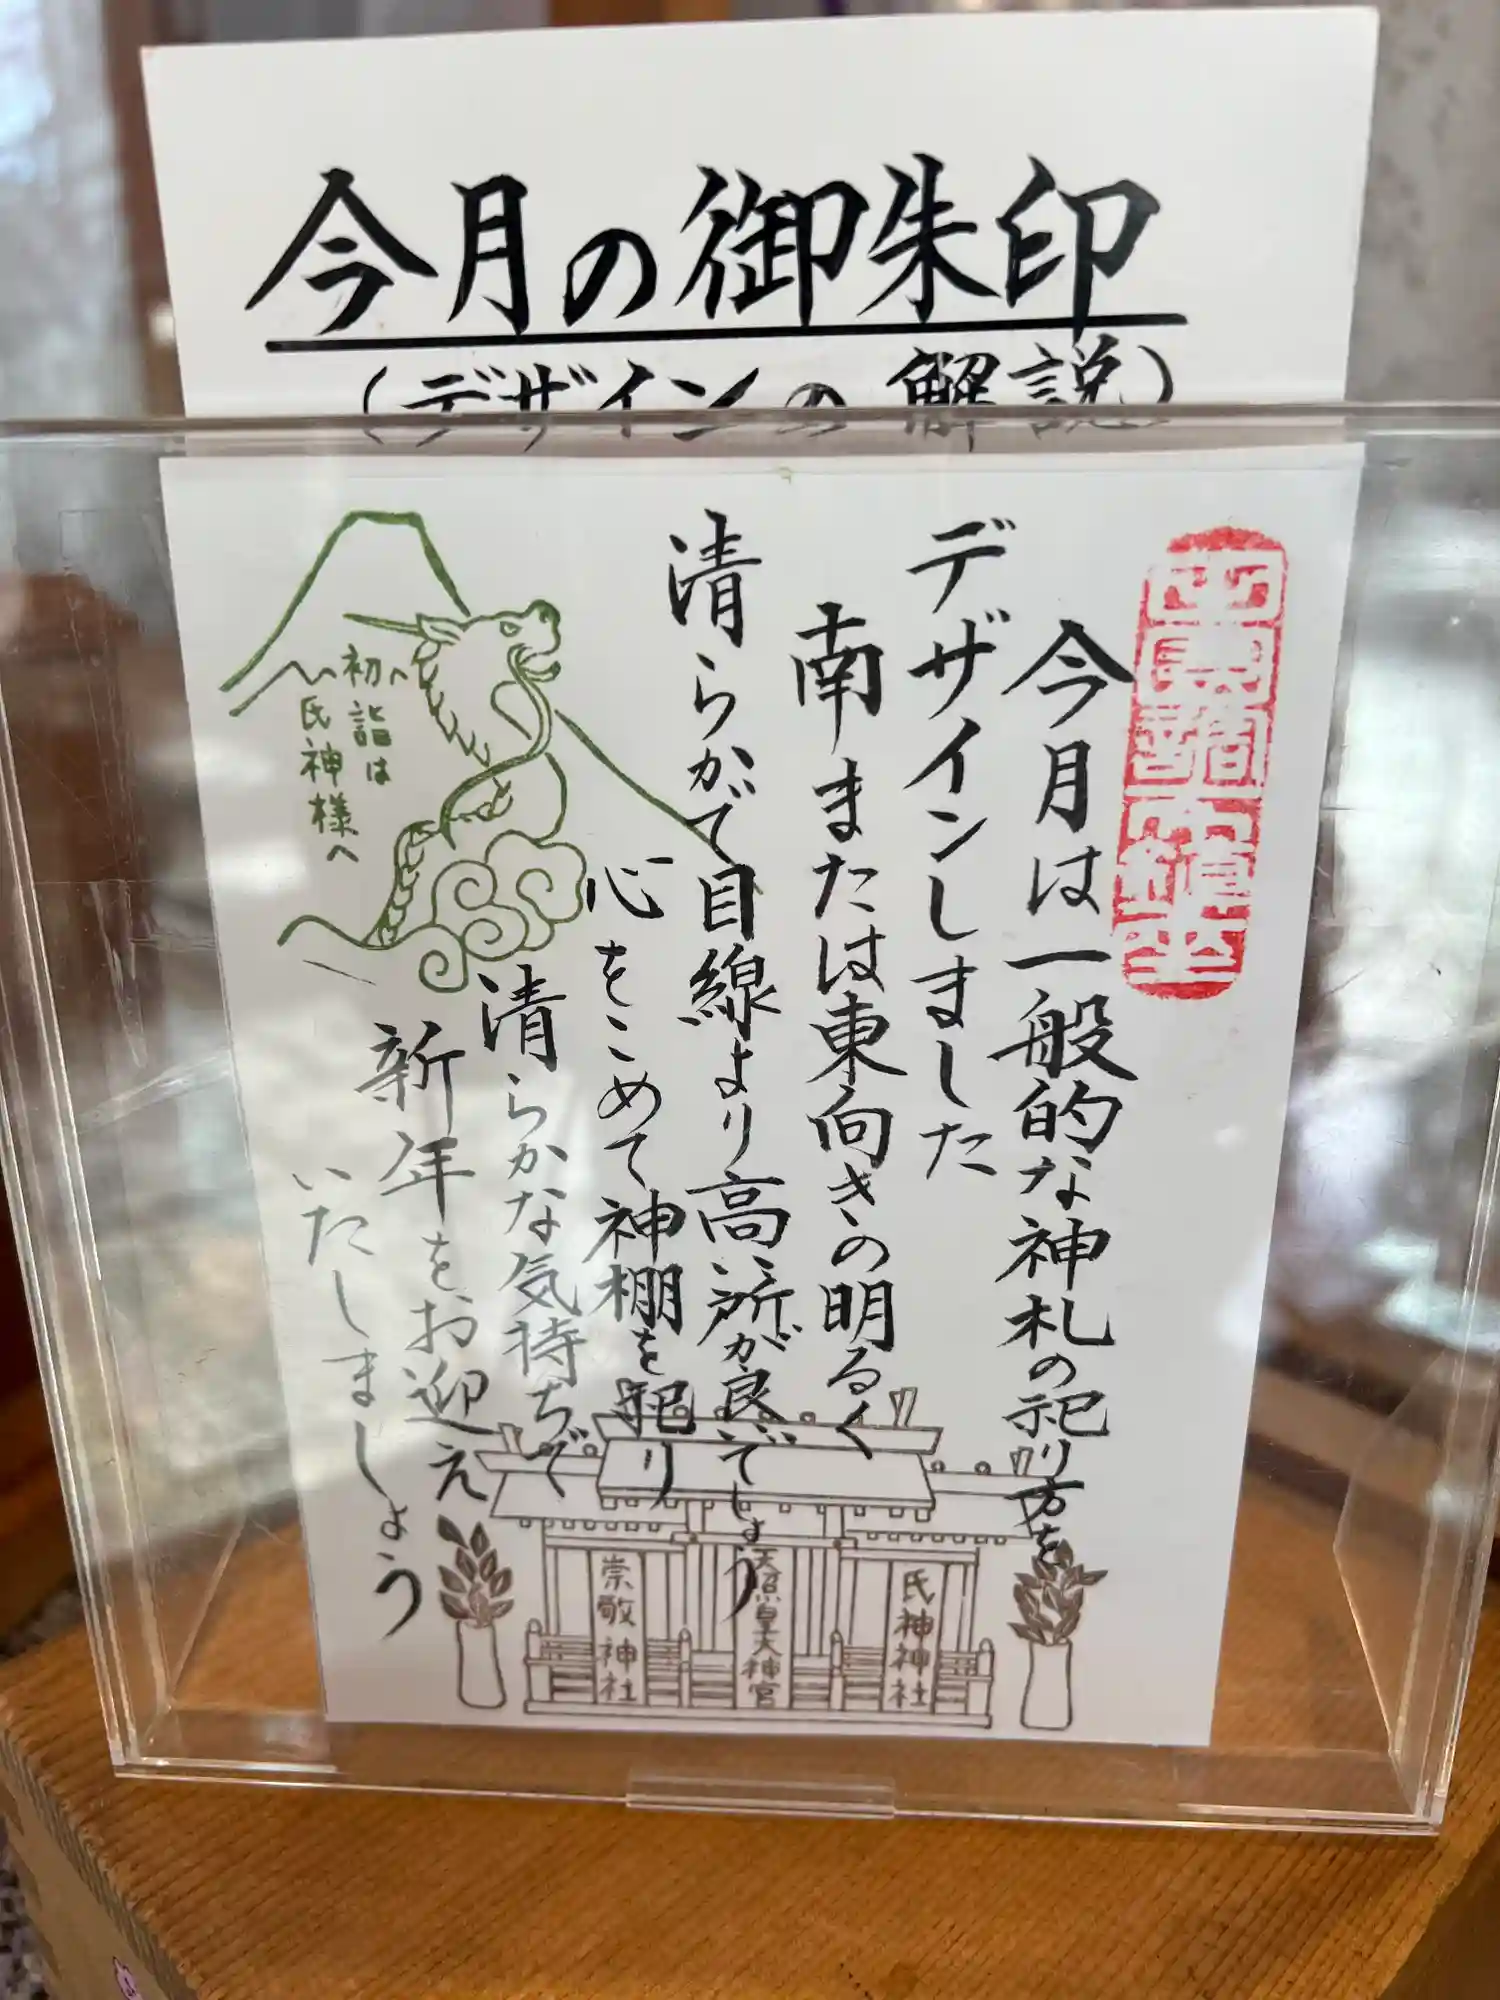 今月の御朱印
(デザインの解説)
今月は一般的な神札の祀り方を
デザインしました
南または東向きの明るく
清らかで目線より高い所が良いでしょう
心をこめて神棚を祀り
清らかな気持ちで
新年をお迎え
いたしましょう
初詣は
氏神様へ
氏神神社
天照皇大神宮
崇敬神社